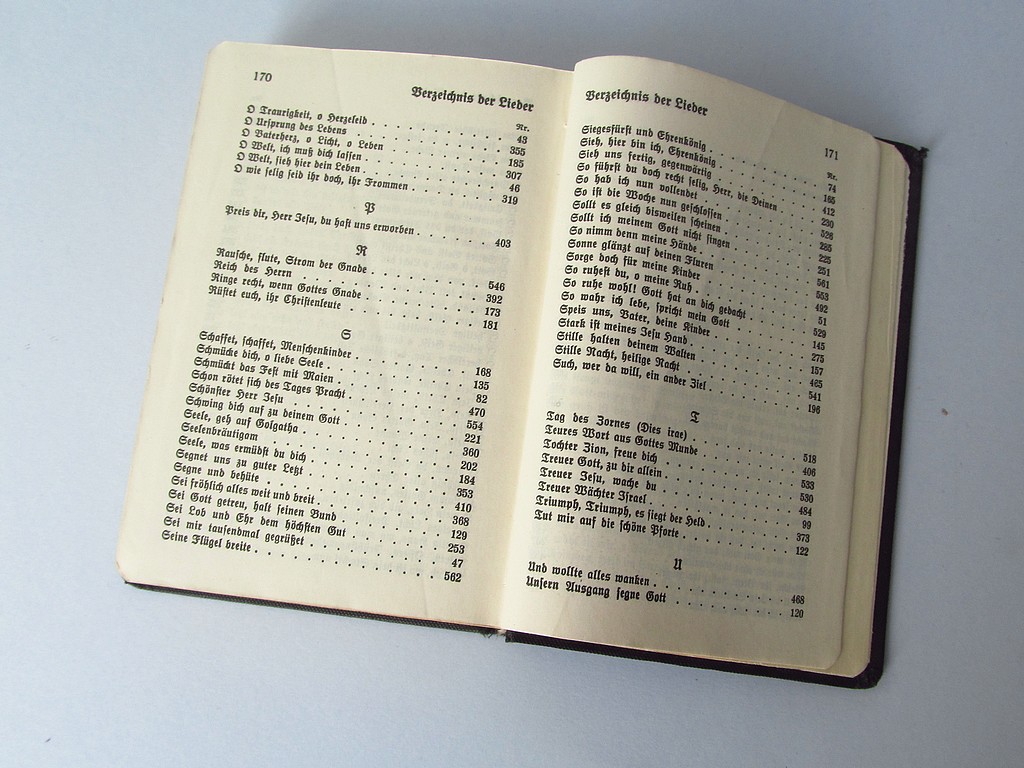 170
Verzeichnis der Lieder
Nr.
O Traurigkeit, o Herzeleid . . . . . . . . . 43
O Ursprung des Lebens . . . . . . . . . 355
O Vaterherz, o Licht, o Leben . . . . . . . . . 185
O Welt, ich muß dich lassen . . . . . . . . . 307
O Welt, sieh hier dein Leben . . . . . . . . . 46
O wie selig seid ihr doch, ihr Frommen . . . . . . . . . 319
P
Preis dir, Herr Jesu, du hast uns erworben . . . . . . 403
R
Rausche, flute, Strom der Gnade . . . . . . . . . 546
Reich des Herrn . . . . . . . . . 392
Ringe recht, wenn Gottes Gnade . . . . . . . . . 173
Rüstet euch, ihr Christenleute . . . . . . . . . 181
S
Schaffet, schaffet, Menschenkinder . . . . . . . . . 168
Schmücke dich, o liebe Seele . . . . . . . . . 135
Schmückt das Fest mit Maien . . . . . . . . . 82
Schon rötet sich des Tages Pracht . . . . . . . . . 470
Schönster Herr Jesu . . . . . . . . . 554
Schwing dich auf zu deinem Gott . . . . . . . . . 221
Seele, geh auf Golgatha . . . . . . . . . 360
Seelenbräutigam . . . . . . . . . 202
Seele, was ermüdst du dich . . . . . . . . . 184
Segnet uns zu guter Letzt . . . . . . . . . 353
Segne und behüte . . . . . . . . . 410
Sei fröhlich alles weit und breit . . . . . . . . . 368
Sei Gott getreu, halt seinen Bund . . . . . . . . . 129
Sei Lob und Ehr dem höchsten Gut . . . . . . . . . 253
Sei mir tausendmal gegrüßet . . . . . . . . . 47
Seine Flügel breite . . . . . . . . . 562
Verzeichnis der Lieder
171
Nr.
Siegesfürst und Ehrenkönig . . . . . . . . . 74
Sieh, hier bin ich, Ehrenkönig . . . . . . . . . 165
Sieh uns fertig, gegenwärtig . . . . . . . . . 412
So führst du doch recht selig, Herr, die Deinen . . . . 230
So hab ich nun vollendet . . . . . . . . . 526
So ist die Woche nun geschlossen . . . . . . . . . 285
Sollt es gleich bisweilen scheinen . . . . . . . . . 225
Sollt ich meinem Gott nicht singen . . . . . . . . . 251
So nimm denn meine Hände . . . . . . . . . 561
Sonne glänzt auf deinen Fluren . . . . . . . . . 553
Sorge doch für meine Kinder . . . . . . . . . 492
So ruhest du, o meine Ruh . . . . . . . . . 51
So ruhe wohl! Gott hat an dich gedacht . . . . . . 529
So wahr ich lebe, spricht mein Gott . . . . . . . . . 145
Speis uns, Vater, deine Kinder . . . . . . . . . 275
Stark ist meines Jesu Hand . . . . . . . . . 157
Stille halten deinem Walten . . . . . . . . . 465
Stille Nacht, heilige Nacht . . . . . . . . . 541
Such, wer da will, ein ander Ziel . . . . . . . . . 196
T
Tag des Zornes (Dies irae) . . . . . . . . . 518
Teures Wort aus Gottes Munde . . . . . . . . . 406
Tochter Zion, freue dich . . . . . . . . . 533
Treuer Gott, zu dir allein . . . . . . . . . 530
Treuer Jesu, wache du . . . . . . . . . 484
Treuer Wächter Israel . . . . . . . . . 99
Triumph, Triumph, es siegt der Held . . . . . . . . . 373
Tut mir auf die schöne Pforte . . . . . . . . . 122
U
Und wollte alles wanken . . . . . . . . . 468
Unsern Ausgang segne Gott . . . . . . . . . 120